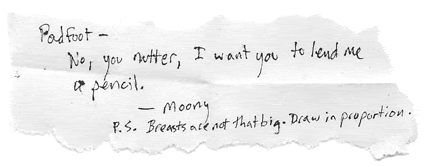 Padfoot –
No, you nutter, I want you to lend me
a pencil.
— Moony
P.S. Breasts are not that big. Draw in proportion.